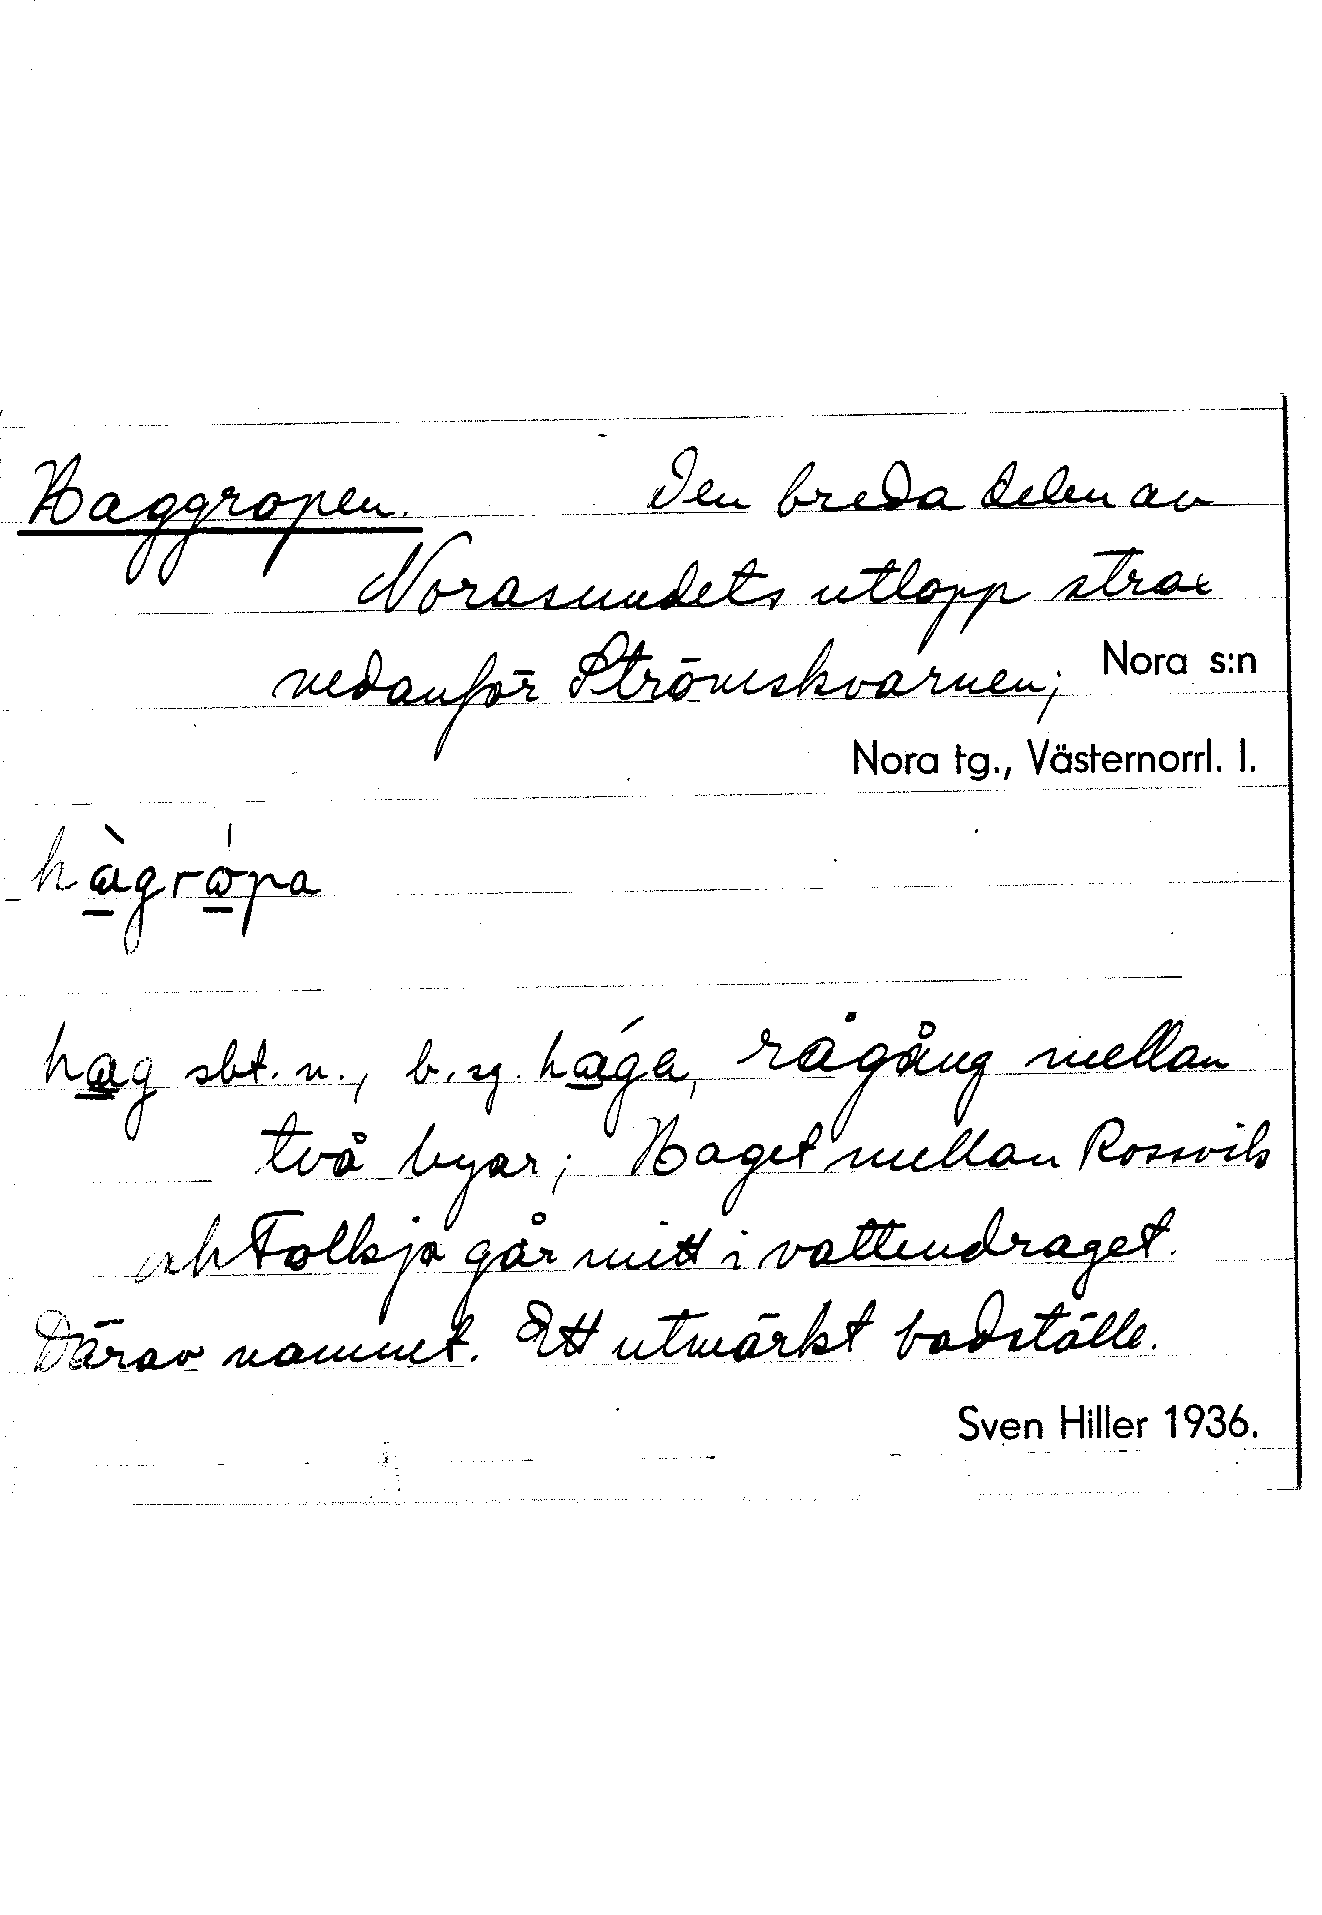 Haggropen. Den breda delen av
Norasundets utlopp strax
nedanför Strömskvarnen; Nora s:n
Nora tg., Västernorrl. l.
hàgrópa
hag sbt. n., b.sg. hága, rågång mellan
två byar; Haget mellan Rossvik
och Tollsjö går mitt i vattendraget.
Därav namnet. Ett utmärkt badställe.
Sven Hiller 1936.